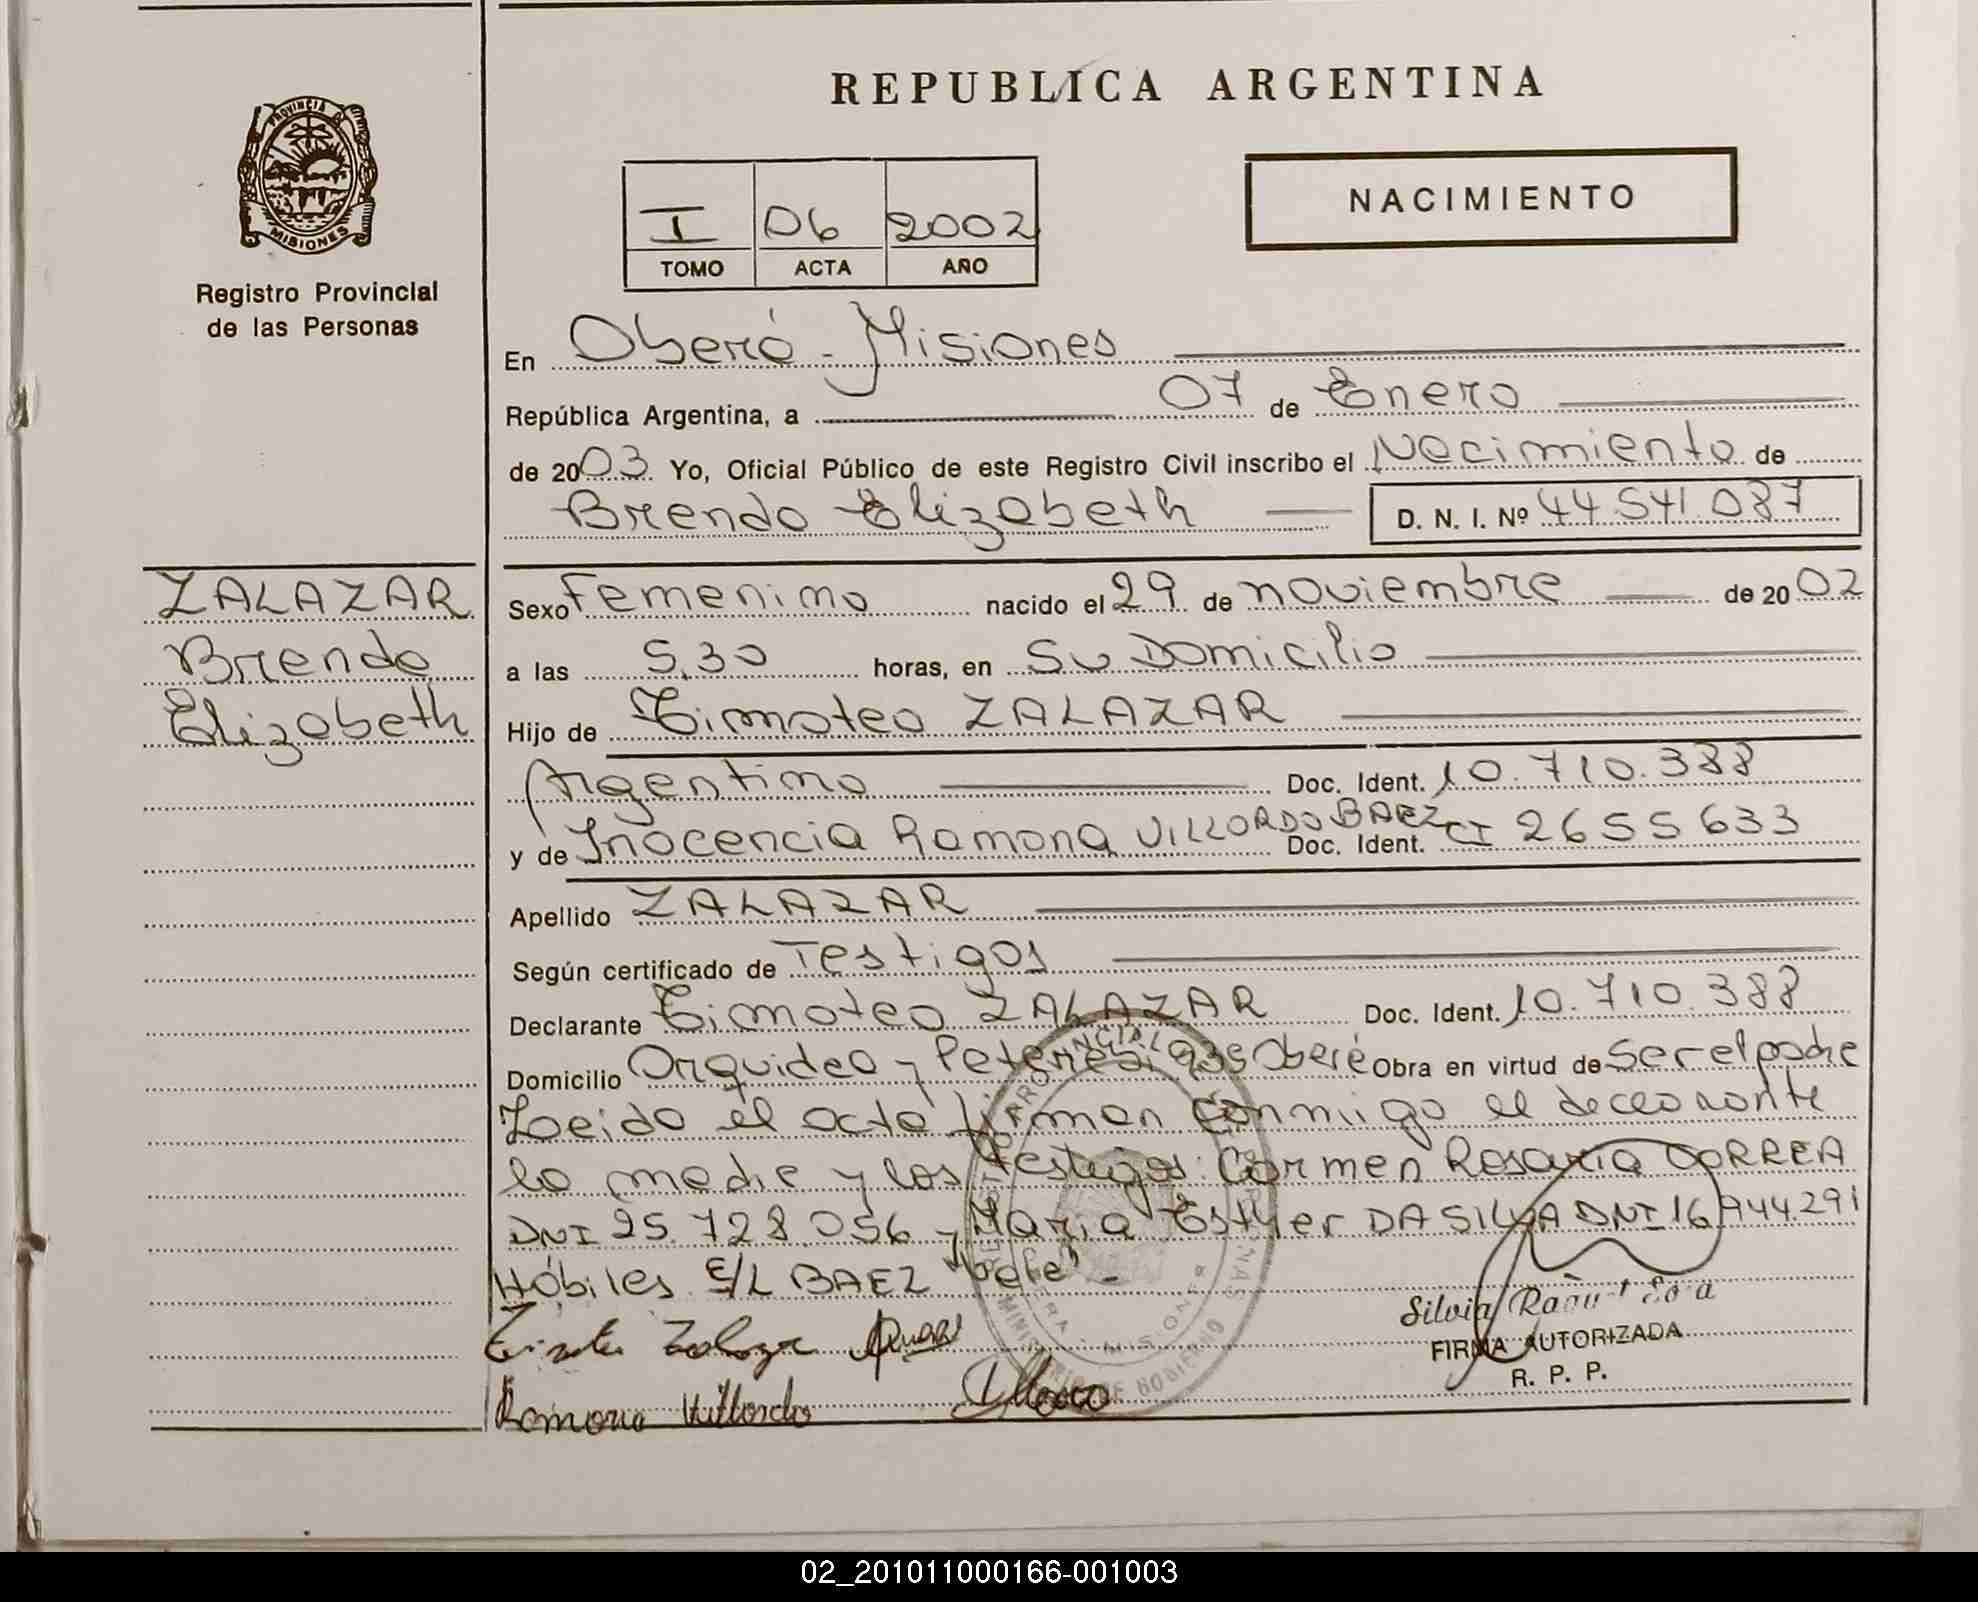 REPUBLICA ARGENTINA
PROVINCIA DE
MISIONES
Registro Provincial
de las Personas
I 06 2002
TOMO ACTA AÑO
NACIMIENTO
En Oberá - Misiones
República Argentina, a 07 de Enero
de 2003 Yo, Oficial Público de este Registro Civil inscribo el Nacimiento de
Brenda Elizabeth D. N. I. Nº 44.541.087
ZALAZAR
Brenda
Elizabeth
Sexo Femenino nacido el 29 de noviembre de 2002
a las 5,30 horas, en Su Domicilio
Hijo de Timoteo ZALAZAR
Argentino Doc. Ident. 10.710.388
y de Inocencia Ramona VILLORDO BAEZ Doc. Ident. CI 2655633
Apellido ZALAZAR
Según certificado de Testigos
Declarante Timoteo ZALAZAR Doc. Ident. 10.710.388
Domicilio Orquidea y Oberá Obra en virtud de Ser el padre
Leido el acta firman conmigo el declarante
la madre y los testigos: Carmen Rosaria CORREA
DNI 25.728.056 - Maria Esther DA SILVA DNI 16.944.291
Hábiles. E/L BAEZ "Vale" -
Ramona Villordo
Silvia Raquel
FIRMA AUTORIZADA
R. P. P.
MINISTERIO DE GOBIERNO
MISIONES
02_201011000166-001003